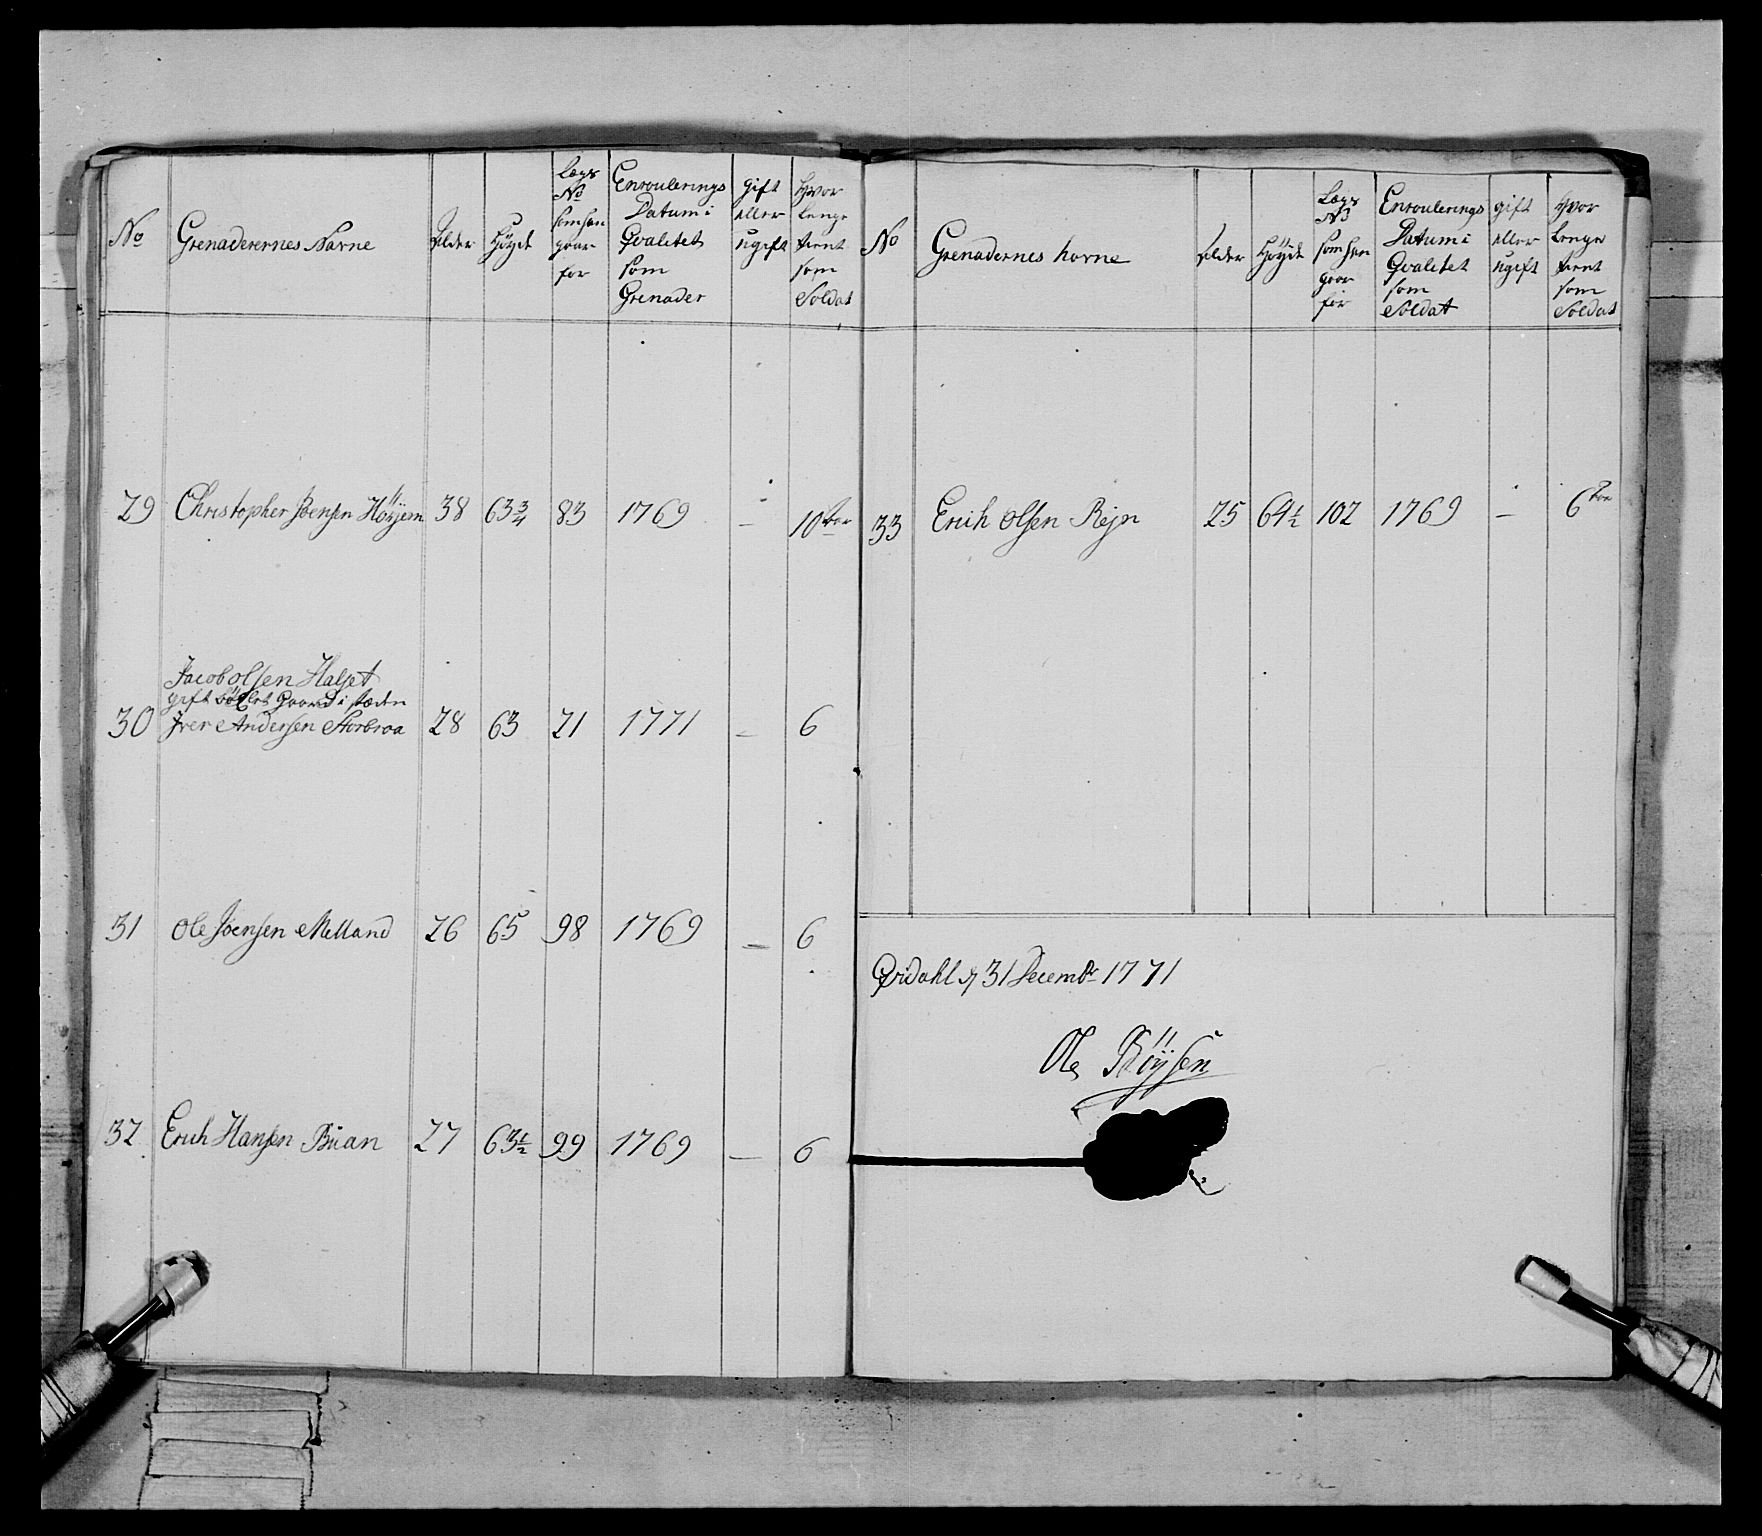 No
Grenaderernes Navne
Alder
Höyde
Lægs
No
som han
gaar
for
Enroulerings
Datum i
Qvalitet
som
Grenader
gift
eller
ugift
Hvor
lenge
tient
som
Soldat
29 Christopher Joensen Höyjem 38 63 3/4 83 1769 – 10 aar
Jacob Olsen Halset
gift Gaard i stæden
30 Iver Andersen Storbroa 28 63 21 1771 – 6
31 Ole Joensen Melland 26 65 98 1769 – 6
32 Erich Hansen Buan 27 63 1/2 99 1769 – 6
No
Grenadernes navne
Alder
Höyde
Lægs
No
som han
gaar
for
Enroulerings
Datum i
Qvalitet
som
Soldat
gift
eller
ugift
Hvor
lenge
tient
som
Soldat
33 Erich Olsen Rejn 25 64 1/2 102 1769 – 6 aar
31 Decembr 1771
Ole Böysen